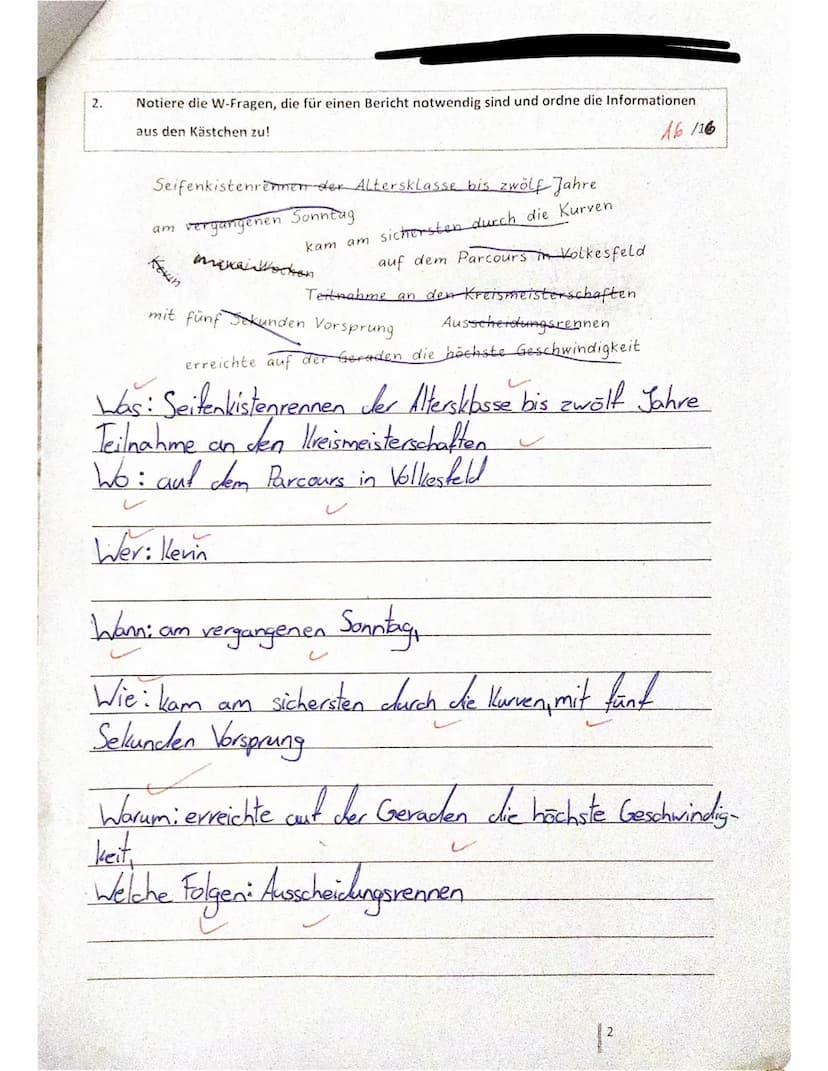 2. Notiere die W-Fragen, die für einen Bericht notwendig sind und ordne die Informationen
aus den Kästchen zu!
16 /16
Seifenkistenrennen der Altersklasse bis zwölf Jahre
am vergangenen Sonntag
kam am sichersten durch die Kurven
Kevin
auf dem Parcours in Volkesfeld
Teilnahme an den Kreismeisterschaften
mit fünf Sekunden Vorsprung
Ausscheidungsrennen
erreichte auf der Geraden die höchste Geschwindigkeit
Was: Seifenkistenrennen der Altersklasse bis zwölf Jahre
Teilnahme an den Kreismeisterschaften
Wo: auf dem Parcours in Volkesfeld
Wer: Kevin
Wann: am vergangenen Sonntag,
Wie: kam am sichersten durch die Kurven, mit fünf
Sekunden Vorsprung
Warum: erreichte auf der Geraden die höchste Geschwindig-
keit,
Welche Folgen: Ausscheidungsrennen
2